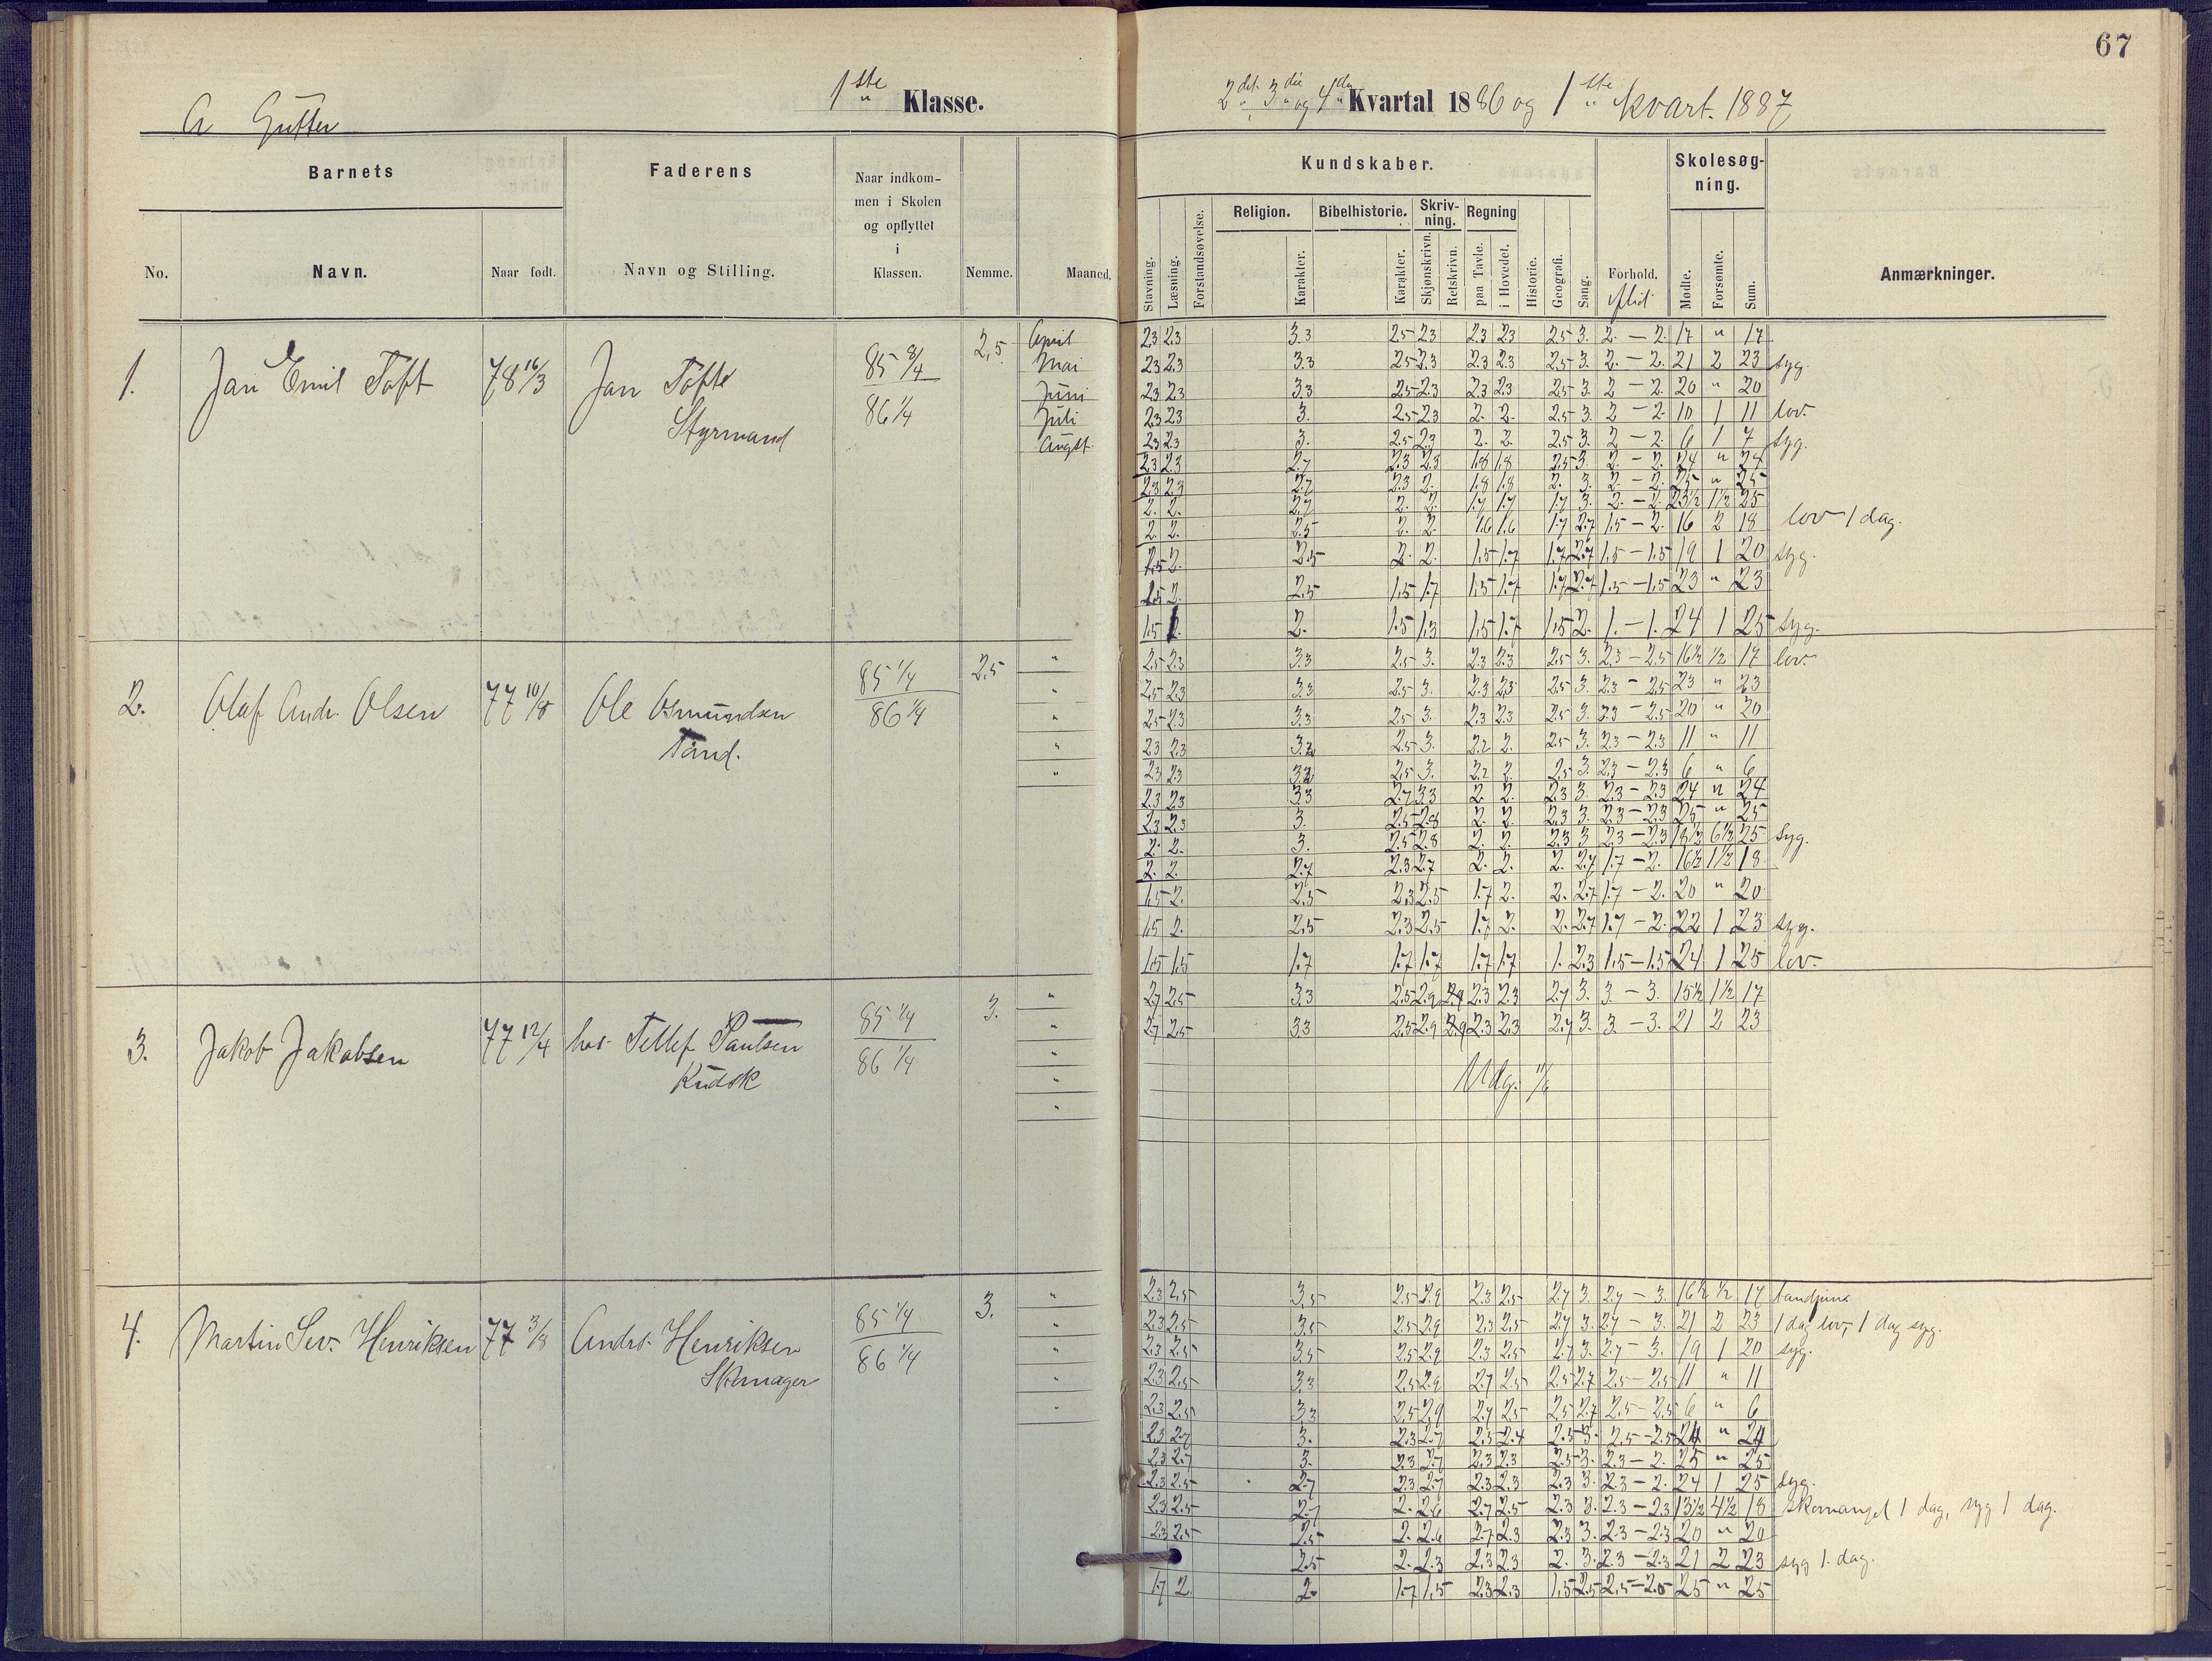 67
1ste Klasse.
2det 3die og 4de Kvartal 1886 og 1ste Kvart. 1887
a Gutter
Barnets
Faderens
Naar indkom-
men i Skolen
og opflyttet
i
Klassen.
Kundskaber.
Skolesøg-
ning.
Religion. Bibelhistorie. Skriv-
ning. Regning
No. Navn. Naar født. Navn og Stilling. Nemme. Maaned.
Stavning. Læsning. Forstandsøvelse. Karakter. Karakter. Skjønskrivn. Retskrivn. paa Tavle. i Hovedet. Historie. Geografi. Sang. Forhold. Flid Mødte. Forsømte. Sum. Anmærkninger.
1. Jan Emil Toft 78 16/3 Jan Tofte 85 8/4 2,5 April
Styrmand 86 1/4 Mai
Juni
Juli
Augst.
2.3 2.3 3.3 2.5 2.3 2.3 2.3 2.5 3. 2. — 2. 17 " 17
2.3 2.3 3.3 2.5 2.3 2.3 2.3 2.5 3. 2. — 2. 21 2 23 syg.
2.3 2.3 3.3 2.5 2.3 2.3 2.3 2.5 3. 2 — 2. 20 " 20
2.3 2.3 3. 2.5 2.3 2. 2. 2.5 3. 2 — 2. 10 1 11 lov.
2.3 2.3 3. 2.5 2.3 2. 2. 2.5 3. 2 — 2. 6 1 7 syg.
2.3 2.3 2.7 2.3 2.3 1.8 1.8 2.5 3. 2. — 2. 24 " 24
2.3 2.3 2.7 2.3 2. 1.8 1.8 2. 3. 2. — 2. 25 " 25
2. 2. 2.7 2. 2. 1.7 1.7 1.7 3. 2. — 2. 23½ 1½ 25
2. 2. 2.5 2. 2. 1.6 1.6 1.7 2.7 1.5 — 2. 16 2 18 lov 1 dag.
1.5 2. 2.5 2. 2. 1.5 1.7 1.7 2.7 1.5 — 1.5 19 1 20 syg.
1.5 2. 2.5 1.5 1.7 1.5 1.7 1.7 2.7 1.5 — 1.5 23 " 23
2. 1.5 1.3 1.5 1.7 1.5 2. 1. — 1. 24 1 25 syg.
2. Olaf Andr. Olsen 77 10/8 Ole Osmundsen 85 1/4 2,5
86 1/4
2.5 2.3 3.3 2.5 3. 2.3 2.3 2.5 3. 2.3 — 2.5 16½ ½ 17 lov.
2.5 2.3 3.3 2.5 3. 2.3 2.3 2.5 3. 2.3 — 2.5 23 " 23
2.5 2.3 3.3 2.5 3. 2.3 2.3 2.5 3. 2.3 — 2.5 20 " 20
2.3 2.3 2.5 3. 2.2 2. 2.5 3. 2.3 — 2.3 11 " 11
2.3 2.3 2.5 3. 2.2 2. 2.5 3. 2.3 — 2.3 6 " 6
2.3 2.3 3.3 2.7 3.3 2. 2. 2.3 3. 2.3 — 2.3 24 " 24
2.3 2.3 3. 2.5 2.8 2. 2. 2.3 3. 2.3 — 2.3 25 " 25
2. 2. 3. 2.5 2.8 2. 2. 2.3 3 2.3 — 2.3 18½ 6½ 25 Syg.
2. 2. 2.7 2.3 2.7 2. 2. 2. 2.7 1.7 — 2. 16½ 1½ 18
1.5 2. 2.5 2.3 2.5 1.7 2. 2. 2.7 1.7 — 2. 20 " 20
1.5 2. 2.5 2.3 2.5 1.7 2. 2. 2.7 1.7 — 2. 22 1 23 syg.
1.5 1.5 1.7 1.7 1.7 1.7 1.7 1. 2.3 1.5 — 1.5 24 1 25 lov.
3. Jakob Jakobsen 77 12/4 hos Tellef Paulsen 85 1/4 3.
Kudsk 86 1/4
2.7 2.5 3.3 2.5 2.9 2.9 2.3 2.3 2.7 3. 3. — 3. 15½ 1½ 17
2.7 2.5 3.3 2.5 2.9 2.9 2.3 2.3 2.7 3. 3 — 3. 21 2 23
Udg. 11/6
4. Martin Sev. Henriksen 77 3/8 Andrs. Henriksen 85 1/4 3.
Skomager 86 1/4
2.3 2.5 3.5 2.5 2.9 2.3 2.5 2.7 3. 2.7 — 3. 16½ ½ 17
2.3 2.5 3.5 2.5 2.9 2.3 2.5 2.7 3. 2.7 — 3. 21 2 23 1 dag lov, 1 dag syg.
2.3 2.5 3.5 2.5 2.9 2.3 2.5 2.7 3. 2.7 — 3. 19 1 20 syg.
2.3 2.5 3.3 2.5 2.9 2.7 2.5 2.5 2.7 2.5 — 2.5 11 " 11
2.3 2.5 3.3 2.5 2.9 2.7 2.5 2.5 2.7 2.5 — 2.5 6 " 6
2.3 2.7 3. 2.3 2.7 2.5 2.4 2.5 3. 2.5 — 2.5 24 " 24
2.3 2.7 3. 2.3 2.7 2.3 2.3 2.5 3. 2.3 — 2. 25 " 25
2.3 2.5 2.7 2.3 2.7 2.3 2.3 2.3 3. 2.3 — 2. 24 1 25 syg.
2.3 2.5 2.7 2. 2.6 2.7 2.5 2.3 3. 2.3 — 2.3 13½ 4½ 18 Skomangel 1 dag, syg 1 dag.
2.3 2.5 2.5 2. 2.6 2.7 2.3 2.3 3. 2.3 — 2.3 20 " 20
2.5 2. 2.3 2.3 2.3 2. 3. 2.3 — 2.3 21 2 23 syg 1. dag.
1.7 2. 2. 1.7 1.5 2.3 2.3 1.5 2.5 2.5 — 2.5 25 " 25